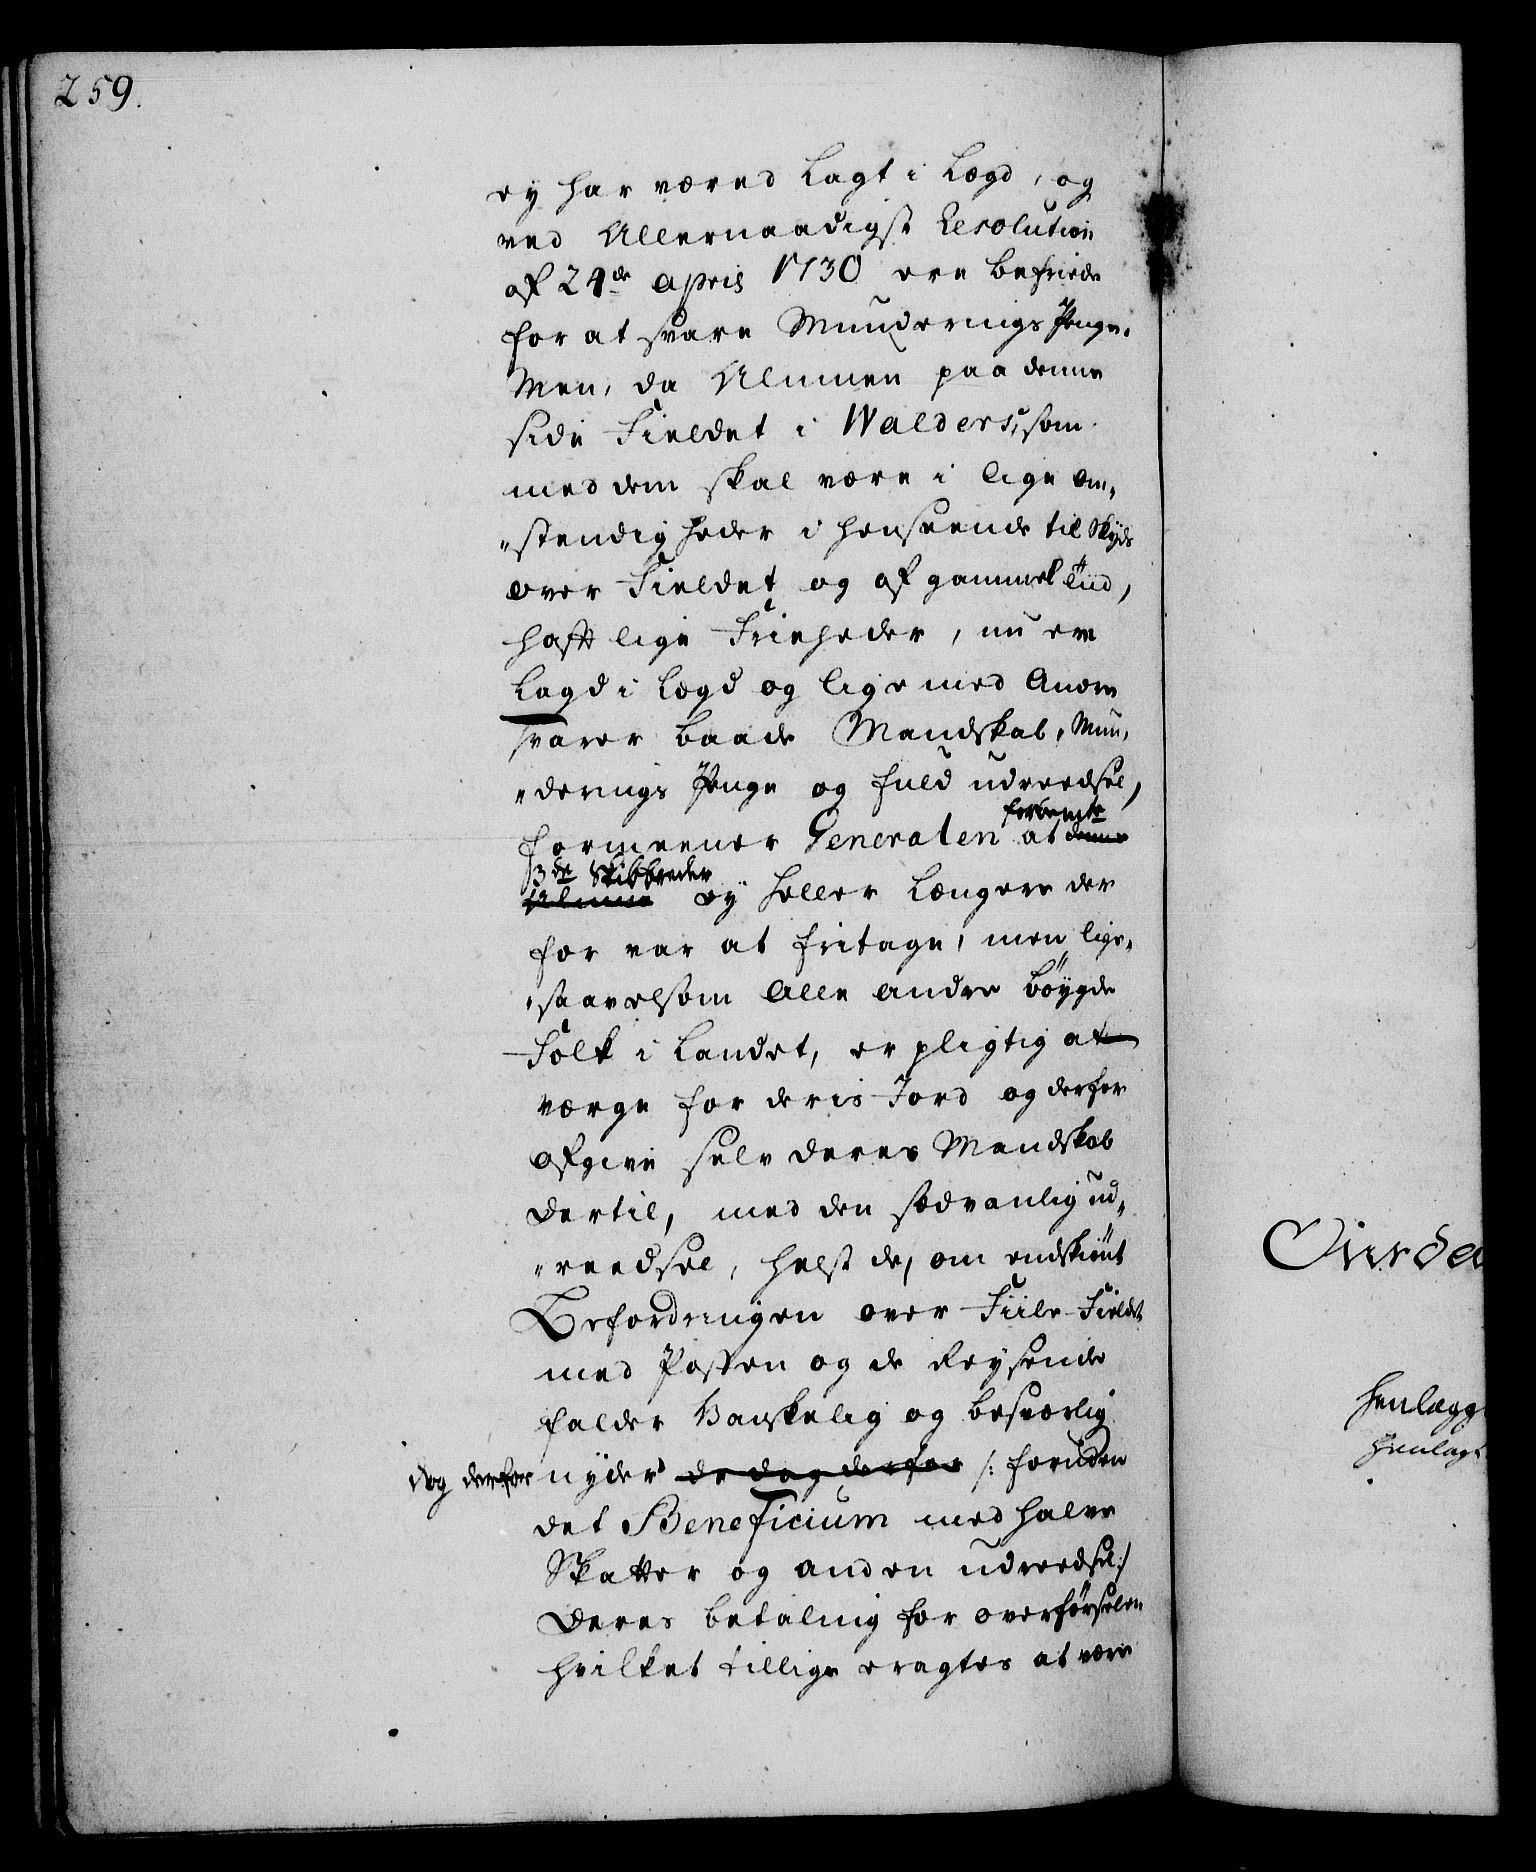 259.
ey har væred lagt i Lægd, og
ved Allernaadigst Resolution
af 24de April 1730 ere befriede
for at svare Munderings Penge.
Men, da Almuen paa denne
side Fieldet i Walders, som
med dem skal være i lige Om-
"stendigheder i henseende til Skyds
over Fieldet og af gammel tiid,
haft lige Friheder, nu ere
Lagd i Lægd og lige med Andre
svarer baade Mandskab, Mun-
"derings Penge og fuld udreedsel,
formeener Generalen at denne forbemte
Almue 3de Skibbreder ey heller længere der
for var at fritage, men lige-
"saavelsom Alle andre bøygde
Folk i Landet, er pligtig at
værge for deris Jord og derfor
afgive selv deres Mandskab
dertil, med den sædvanlig ud-
"reedsel, helst de, om endskiønt
Befordringen over Fiile-Fieldet
med Posten og de Reysende
falder Vanskelig og besværlig
dog derfor nyder de dog derfor /: foruden
det Beneficium med halve
Skatter og anden udreedsel :/
deres betaling for overførselen
hvilket tillige eragtes at være
henlagt